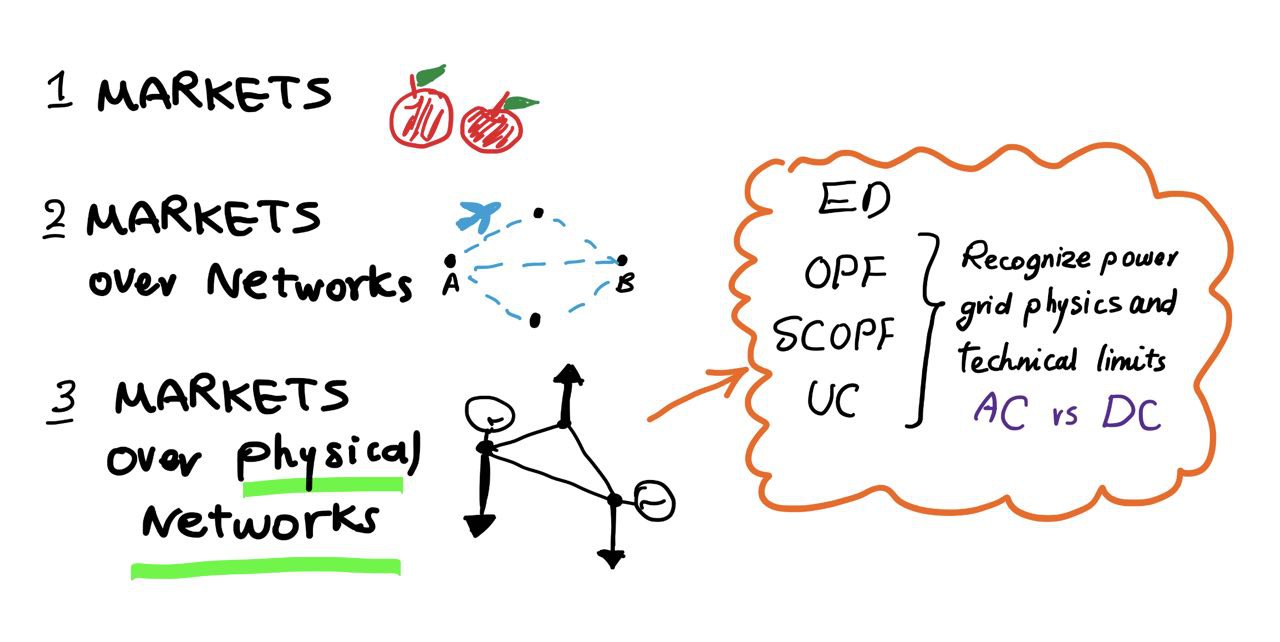 1 MARKETS
2 MARKETS
over Networks
A
B
3 MARKETS
over physical
Networks
ED
OPF
SCOPF
UC
Recognize power
grid physics and
technical limits
AC vs DC